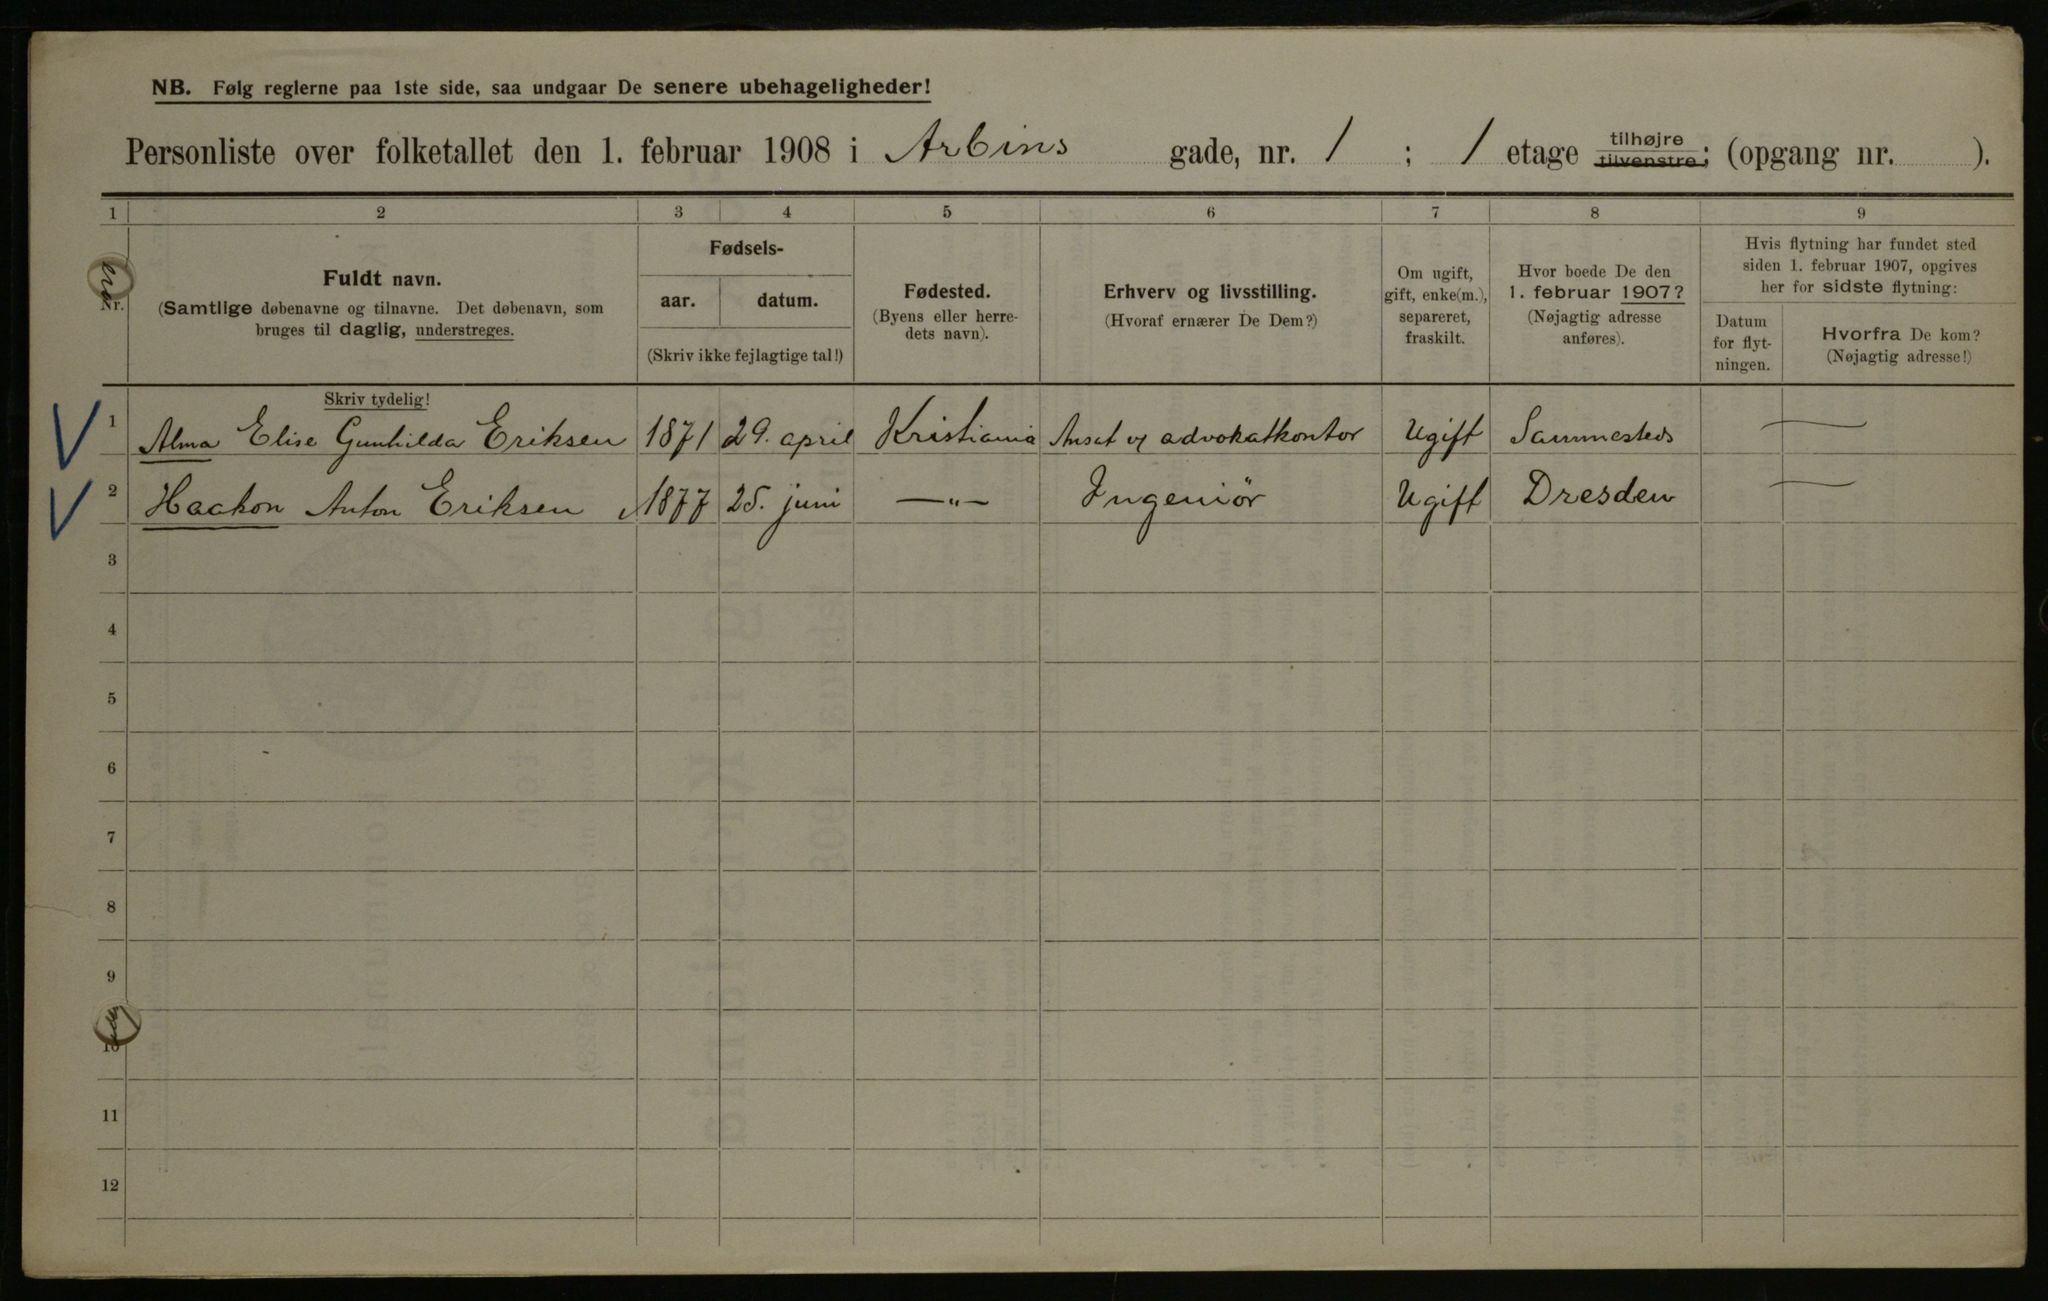 NB. Følg reglerne paa 1ste side, saa undgaar De senere ubehageligheder!
Personliste over folketallet den 1. februar 1908 i Arbins gade, nr. 1 ; 1 etage tilhøjre tilvenstre; (opgang nr. ).
1 2 3 4 5 6 7 8 9
Nr.
Fuldt navn.
(Samtlige døbenavne og tilnavne. Det døbenavn, som
bruges til daglig, understreges.
Fødsels-
aar. datum.
(Skriv ikke fejlagtige tal!)
Fødested.
(Byens eller herre-
dets navn).
Erhverv og livsstilling.
(Hvoraf ernærer De Dem?)
Om ugift,
gift, enke(m.),
separeret,
fraskilt.
Hvor boede De den
1. februar 1907?
(Nøjagtig adresse
anføres).
Hvis flytning har fundet sted
siden 1. februar 1907, opgives
her for sidste flytning:
Datum
for flyt-
ningen.
Hvorfra De kom?
(Nøjagtig adresse!)
Skriv tydelig!
1 Alma Elise Gunhilda Eriksen 1871 29. april Kristiania Ansat på advokatkontor Ugift Sammesteds —
2 Haakon Anton Eriksen 1877 25. juni —"— Ingeniör Ugift Dresden —
3
4
5
6
7
8
9
10
11
12